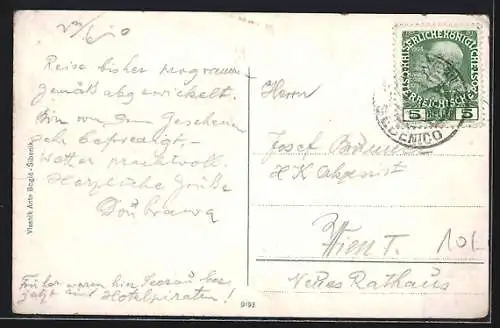 Reise bisher programm
gemäß abgewickelt.
Bin von dem Gesehenen
sehr befriedigt, –
Wetter prachtvoll.
Herzliche Grüße
Doubrawa
Früher waren hier
jetzt nur Hotelpiraten!
Vlasnik Ante Bogić - Šibenik
KAISERLICHE KÖNIGLICHE
ÖSTERREICHISCHE
5 HELLER 5
SEBENICO
Herrn
Josef
Wien I.
Neues Rathaus
10/-